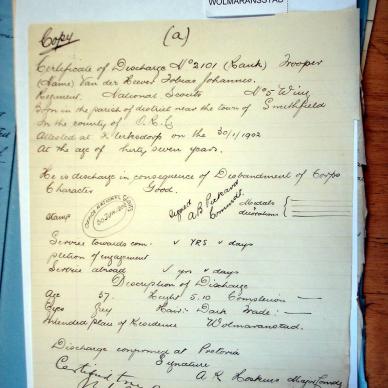 WOLMARANSSTAD
Copy
(a)
Certificate of Discharge No 2101 (Rank) Trooper
(Name) Van der Heever Tobias Johannes.
Regiment. National Scouts No 5 Wing
Born in the parish of district near the town of Smithfield
In the county of O.R.C
Attested at Klerksdorp on the 30/1/1902
At the age of herty seven years.
He is discharge in consequence of Disbandment of Corps
Character Good.
Stamp
OFFICE NATIONAL SCOUTS
Signed
A B Pienaar
Commdt.
Medals
decorations
Service towards com: YRS days
pletion of engagement
Service abroad yrs days
Description of Discharge
Age 37 Height 5.10 Complexion —
Eyes Grey Hair:- Dark Trade: —
Intended place of Residence Wolmaranstad.
Discharge confirmed at Pretoria
Signature
A R Hoskins Major Comdg
Certified true